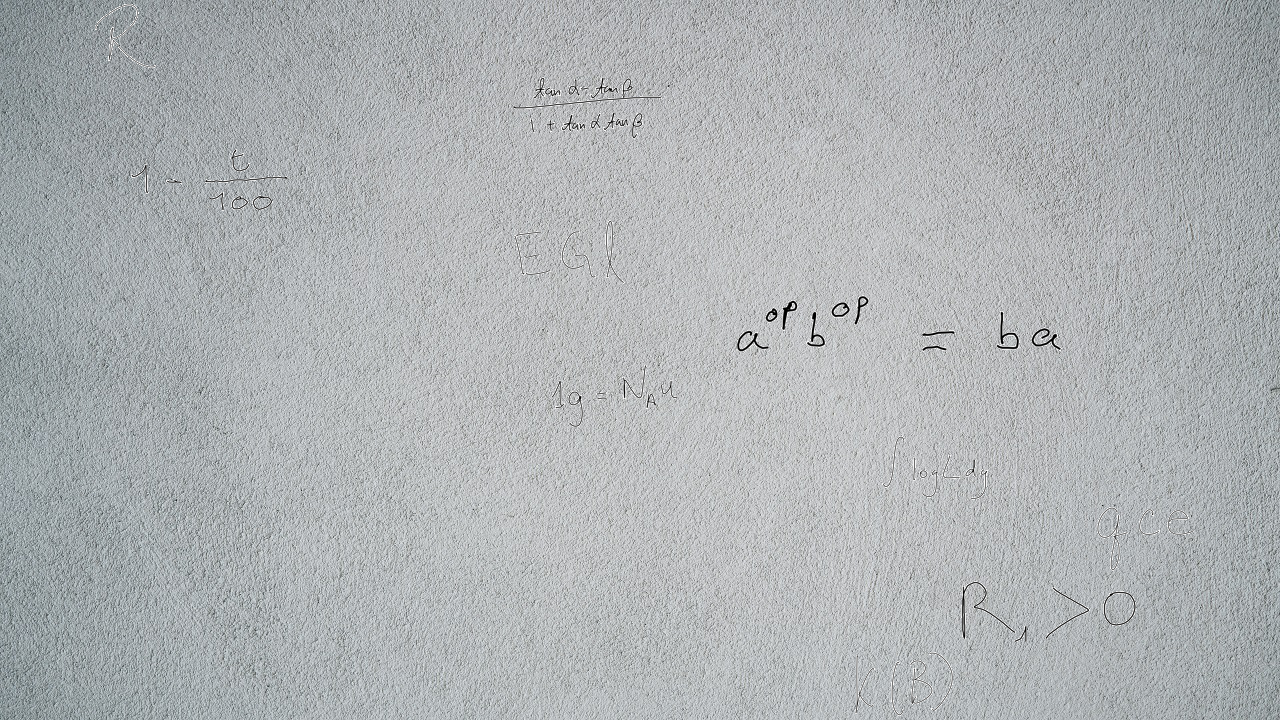 R
\frac{\tan \alpha - \tan \beta}{1 + \tan \alpha \tan \beta}
1 - \frac{t}{100}
E G l
a^{op} b^{op} = b a
1g = N_A u
\int \log L dg
R_1 > 0